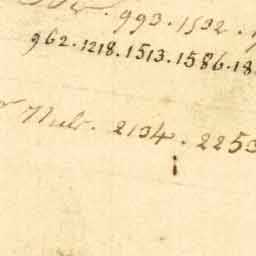 . 993 . 1532 .
962 . 1218 . 1513 . 1586 . 18
Nub. 2134 . 2253